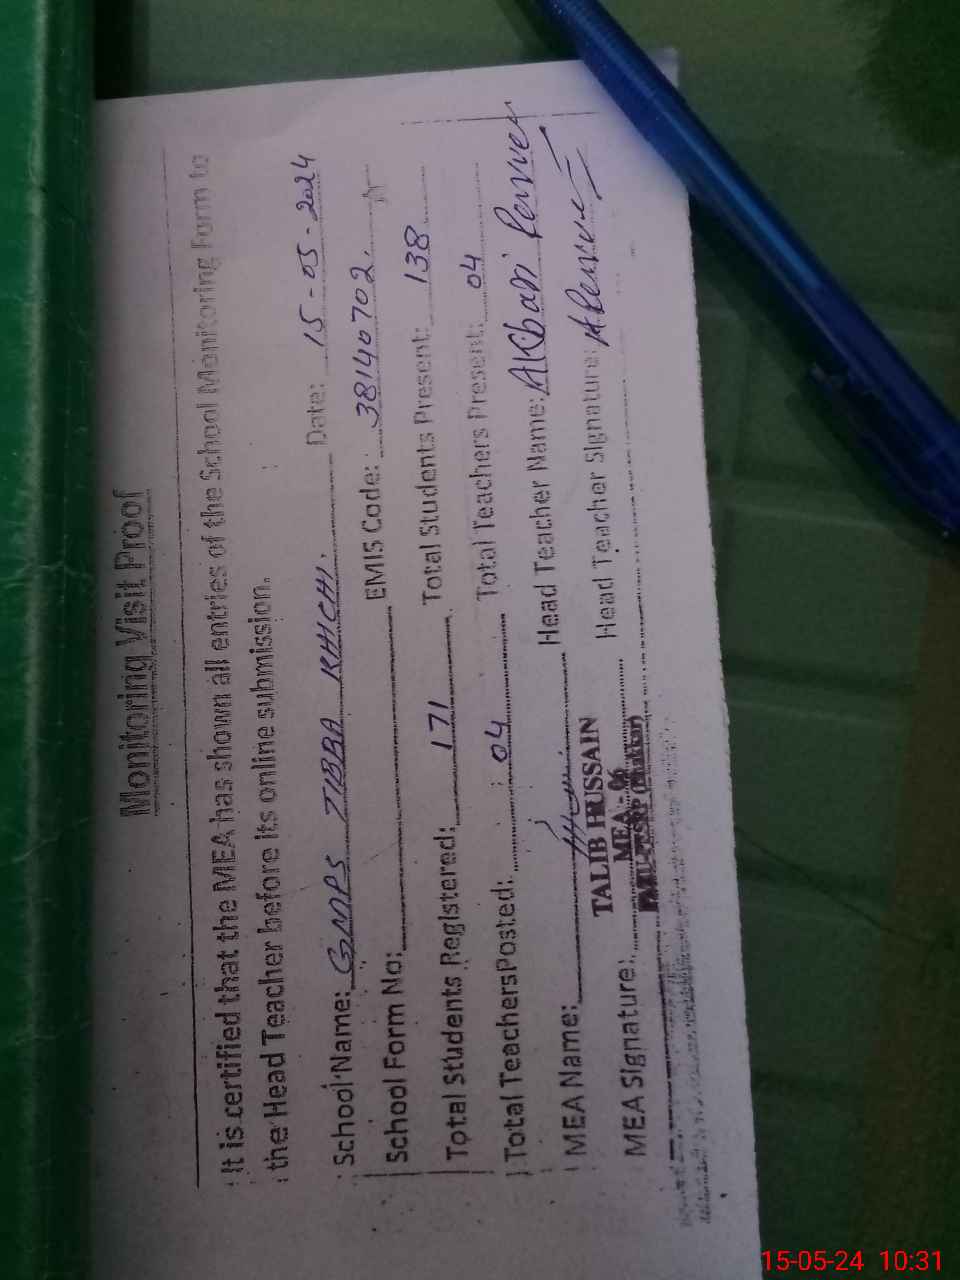 Monitoring Visit Proof
It is certified that the MEA has shown all entries of the School Monitoring Form to
the Head Teacher before its online submission.
School Name: GMPS TIBBA KHICHI. Date: 15-05-2024
School Form No: EMIS Code: 38140702.
Total Students Registered: 171 Total Students Present: 138
Total Teachers Posted: 04 Total Teachers Present: 04
MEA Name: Head Teacher Name: Akbari Perveen
TALIB HUSSAIN
MEA - 06
MEA Signature: Head Teacher Signature:
15-05-24 10:31